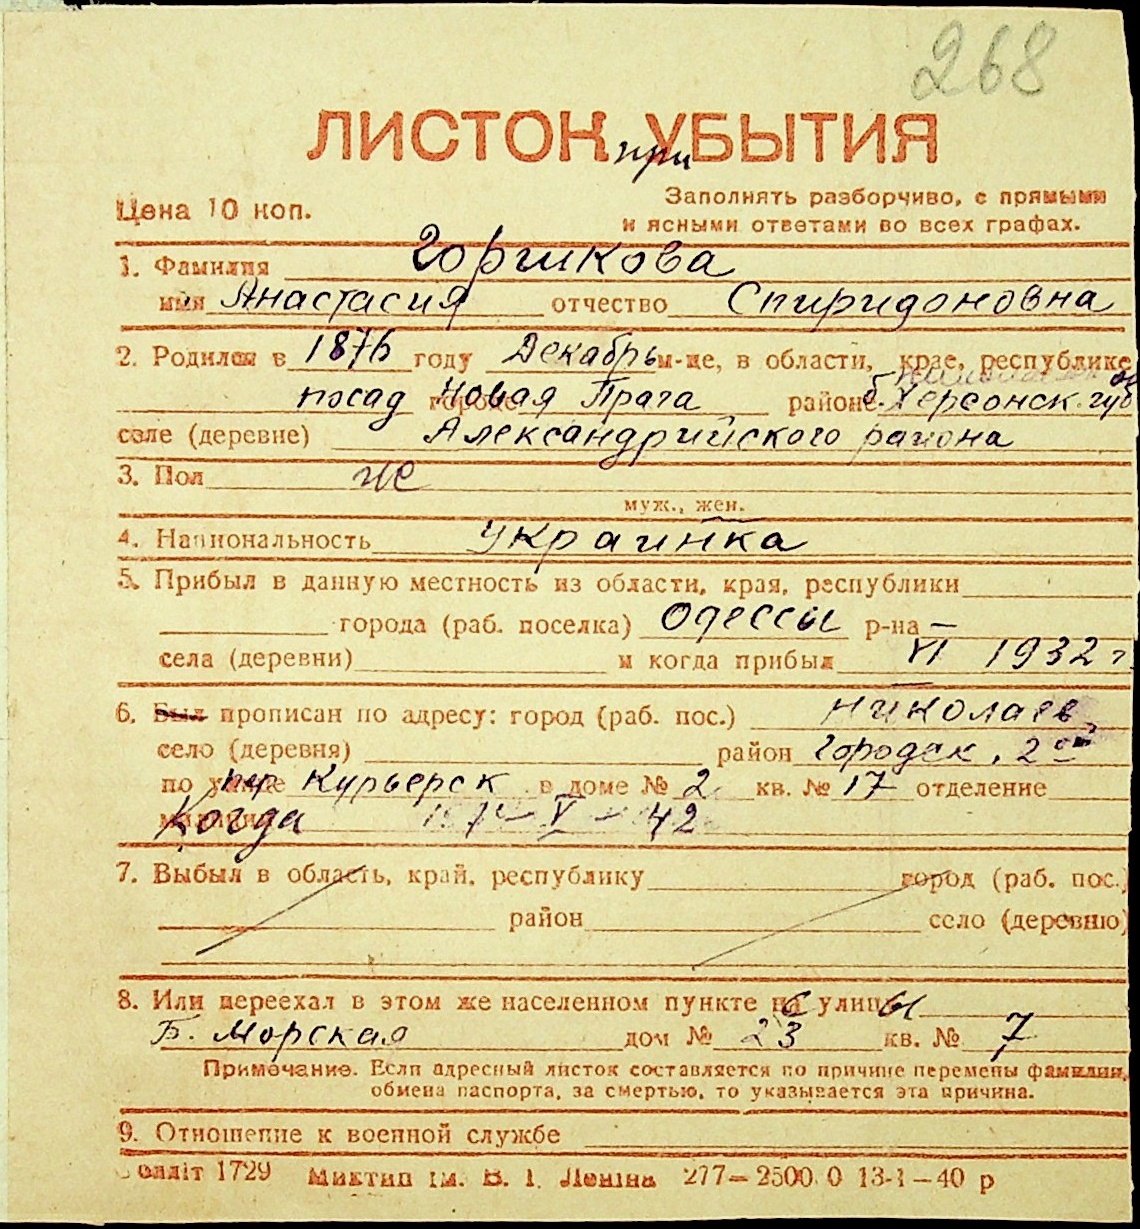 268
ЛИСТОК при УБЫТИЯ
Цена 10 коп.
Заполнять разборчиво, с прямыми
и ясными ответами во всех графах.
1. Фамилия Горшкова
имя Анастасия отчество Спиридоновна
2. Родился в 1876 году Декабрь м-це, в области, крае, республике
посад городе Новая Прага районе б. Херсонск. губ
селе (деревне) Александрийского района
3. Пол же
муж., жен.
4. Национальность украинка
5. Прибыл в данную местность из области, края, республики
города (раб. поселка) Одессы р-на —
села (деревни) и когда прибыл VI 1932 г.
6. Был прописан по адресу: город (раб. пос.) Николаев
село (деревня) район Городск. 2ой
по улице пер Курьерск в доме № 2 кв. № 17 отделение
милиции Когда V – 42
7. Выбыл в область, край, республику город (раб. пос.)
район село (деревню)
8. Или переехал в этом же населенном пункте на с улицы
Б. Морская дом № 23 кв. № 7
Примечание. Если адресный листок составляется по причине перемены фамилии,
обмена паспорта, за смертью, то указывается эта причина.
9. Отношение к военной службе
олліт 1729 Миктип ім. В. І. Леніна 277—2500 0 13-1—40 р